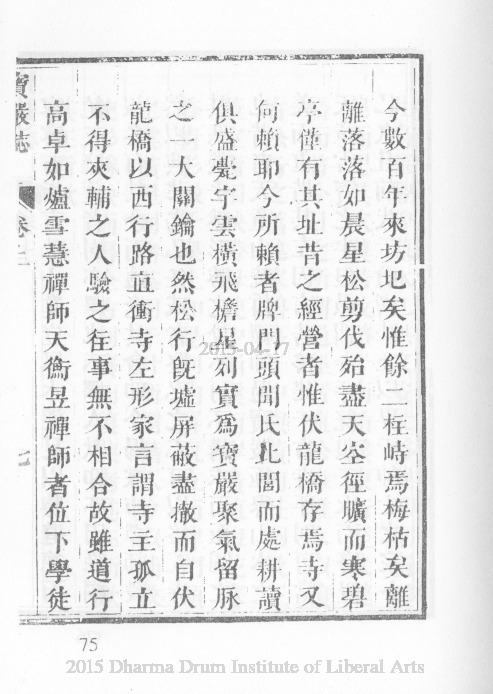 今數百年來坊圮矣惟餘二柱峙焉梅枯矣離
離落落如晨星松剪伐殆盡天空徑曠而寒碧
亭僅有其址昔之經營者惟伏龍橋存焉寺又
何賴耶今所賴者牌門頭聞氏比閭而處耕讀
俱盛甍宇雲橫飛檐星列實為寶嚴聚氣留脉
之一大關鑰也然松行旣墟屏蔽盡撤而自伏
龍橋以西行路直衝寺左形家言謂寺主孤立
不得夾輔之人驗之徃事無不相合故雖道行
高卓如爐雪慧禪師天衡昱禪師者位下學徒
寶嚴志 卷二 七
2015-04-17
75
2015 Dharma Drum Institute of Liberal Arts